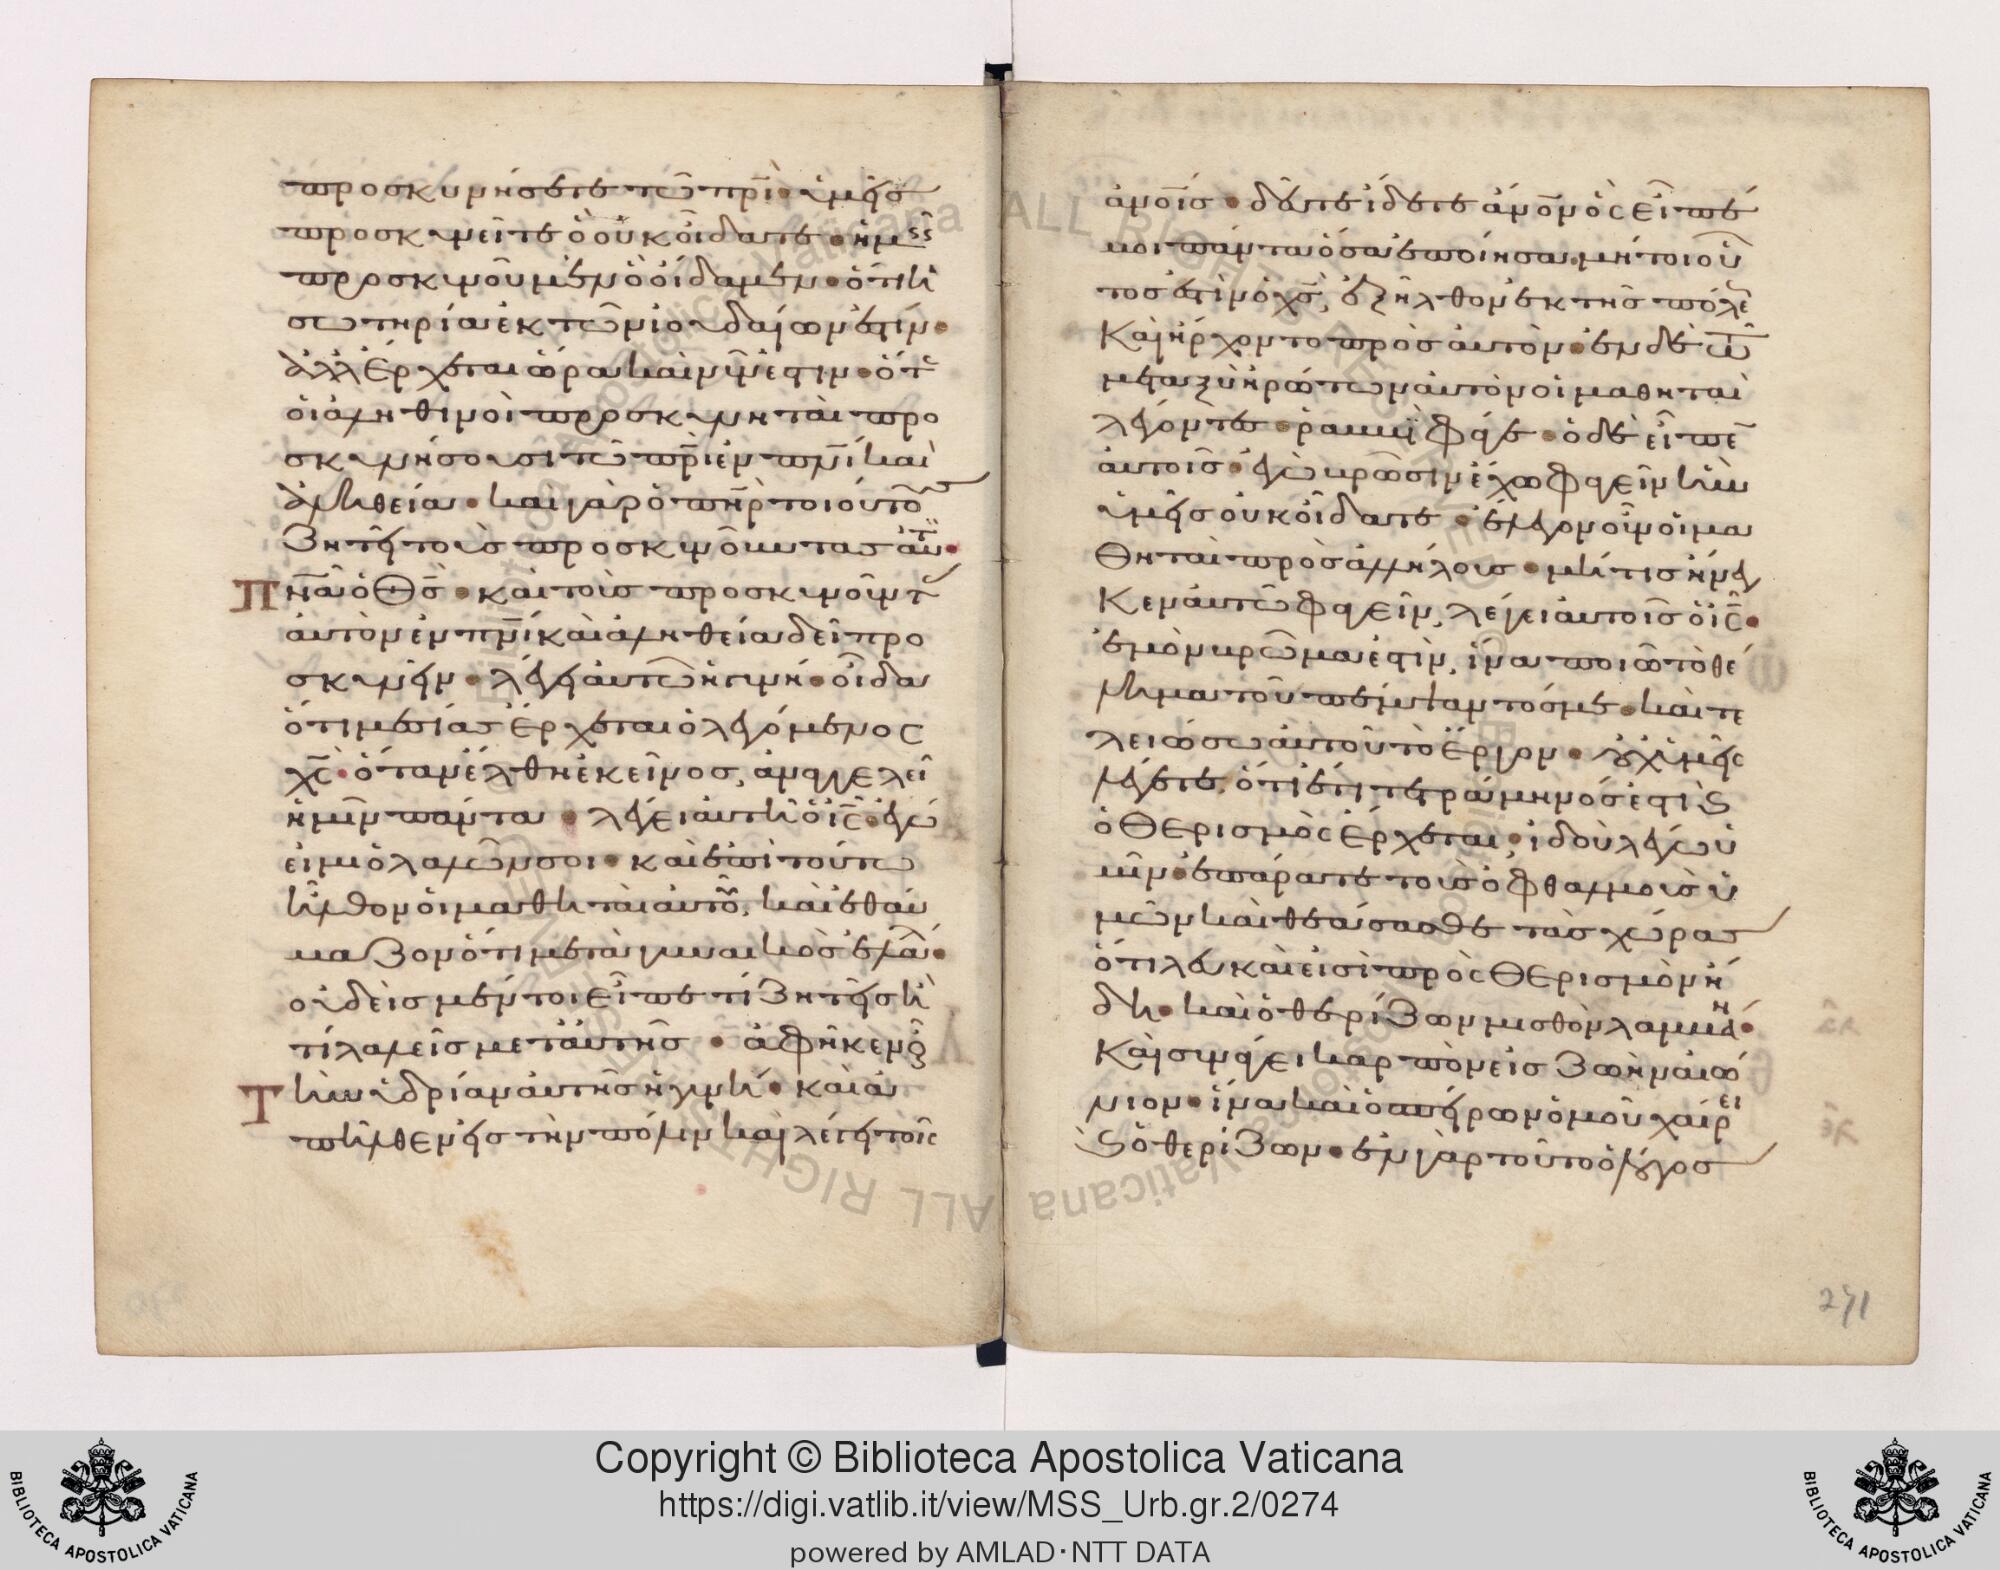 προσκυνήσετε τῶ πρι̅· ὑμεῖς
προσκυνεῖτε ὃ οὐκ οἴδατε· ἡμεῖς
προσκυνοῦμεν ὃ οἴδαμεν· ὅτι ἡ
σωτηρία ἐκ τῶν ἰουδαίων ἐστίν·
ἀλλ' ἔρχεται ὥρα καὶ νῦν ἐστιν· ὅτε
οἱ ἀληθινοὶ προσκυνηταὶ προ
σκυνήσουσι τῶ πρι̅ ἐν πνι̅ καὶ
ἀληθεία· καὶ γὰρ ὁ πηρ̅ τοιούτους
ζητεῖ τοὺς προσκυνοῦντας αὐτόν·
πνα̅ ὁ θς̅· καὶ τοὺς προσκυνοῦντας
αὐτὸν ἐν πνι̅ καὶ ἀληθεία δεῖ προ
σκυνεῖν· λέγει αὐτῶ ἡ γυνή· οἶδα
ὅτι μεσίας ἔρχεται ὁ λεγόμενος
χς̅· ὅταν ἔλθη ἐκεῖνος, ἀναγγελεῖ
ἡμῖν πάντα· λέγει αὐτῆ ὁ ις̅· ἐγώ
εἰμι ὁ λαλῶν σοι· καὶ ἐπὶ τούτω
ἦλθον οἱ μαθηταὶ αὐτοῦ, καὶ ἐθαύ
μαζον ὅτι μετὰ γυναικὸς ἐλάλει·
οὐδεὶς μέντοι εἶπε τί ζητεῖς ἢ
τί λαλεῖς μετ' αὐτῆς· ἀφῆκεν οὖν
τὴν ὑδρίαν αὐτῆς ἡ γυνή· καὶ ἀ
πῆλθεν εἰς τὴν πόλιν καὶ λέγει τοῖς
ἀνοις̅· δεῦτε ἴδετε ἄνον̅ ὃς εἶπέ
μοι πάντα ὅσα ἐποίησα· μήτι οὗ
τός ἐστιν ὁ χς̅, ἐξῆλθον ἐκ τῆς πόλεως
καὶ ἤρχοντο πρὸς αὐτόν· ἐν δὲ τῶ
μεταξὺ ἠρώτων αὐτὸν οἱ μαθηταὶ
λέγοντες· ῥαββὶ φάγε· ὁ δὲ εἶπεν
αὐτοῖς· ἐγὼ βρῶσιν ἔχω φαγεῖν ἣν
ὑμεῖς οὐκ οἴδατε· ἔλεγον οὖν οἱ μα
θηταὶ πρὸς ἀλλήλους· μή τις ἤνεγ
κεν αὐτῶ φαγεῖν, λέγει αὐτοῖς ὁ ις̅·
ἐμὸν βρῶμα ἐστὶν, ἵνα ποιῶ τὸ θέ
λημα τοῦ πέμψαντός με· καὶ τε
λειώσω αὐτοῦ τὸ ἔργον· οὐχ ὑμεῖς
λέγετε, ὅτι ἔτι τετράμηνός ἐστι καὶ
ὁ θερισμὸς ἔρχεται· ἰδοὺ λέγω ὑ
μῖν· ἐπάρατε τοὺς ὀφθαλμοὺς ὑ
μῶν καὶ θεάσασθε τὰς χώρας
ὅτι λευκαί εἰσι πρὸς θερισμὸν ἤ
δη· καὶ ὁ θερίζων μισθὸν λαμβάνει·
καὶ συνάγει καρπὸν εἰς ζωὴν αἰώ
νιον· ἵνα καὶ ὁ σπείρων ὁμοῦ χαίρει
καὶ ὁ θερίζων· ἐν γὰρ τούτο ὁ λόγος
271
Copyright © Biblioteca Apostolica Vaticana
https://digi.vatlib.it/view/MSS_Urb.gr.2/0274
powered by AMLAD·NTT DATA
BIBLIOTECA APOSTOLICA VATICANA
BIBLIOTECA APOSTOLICA VATICANA